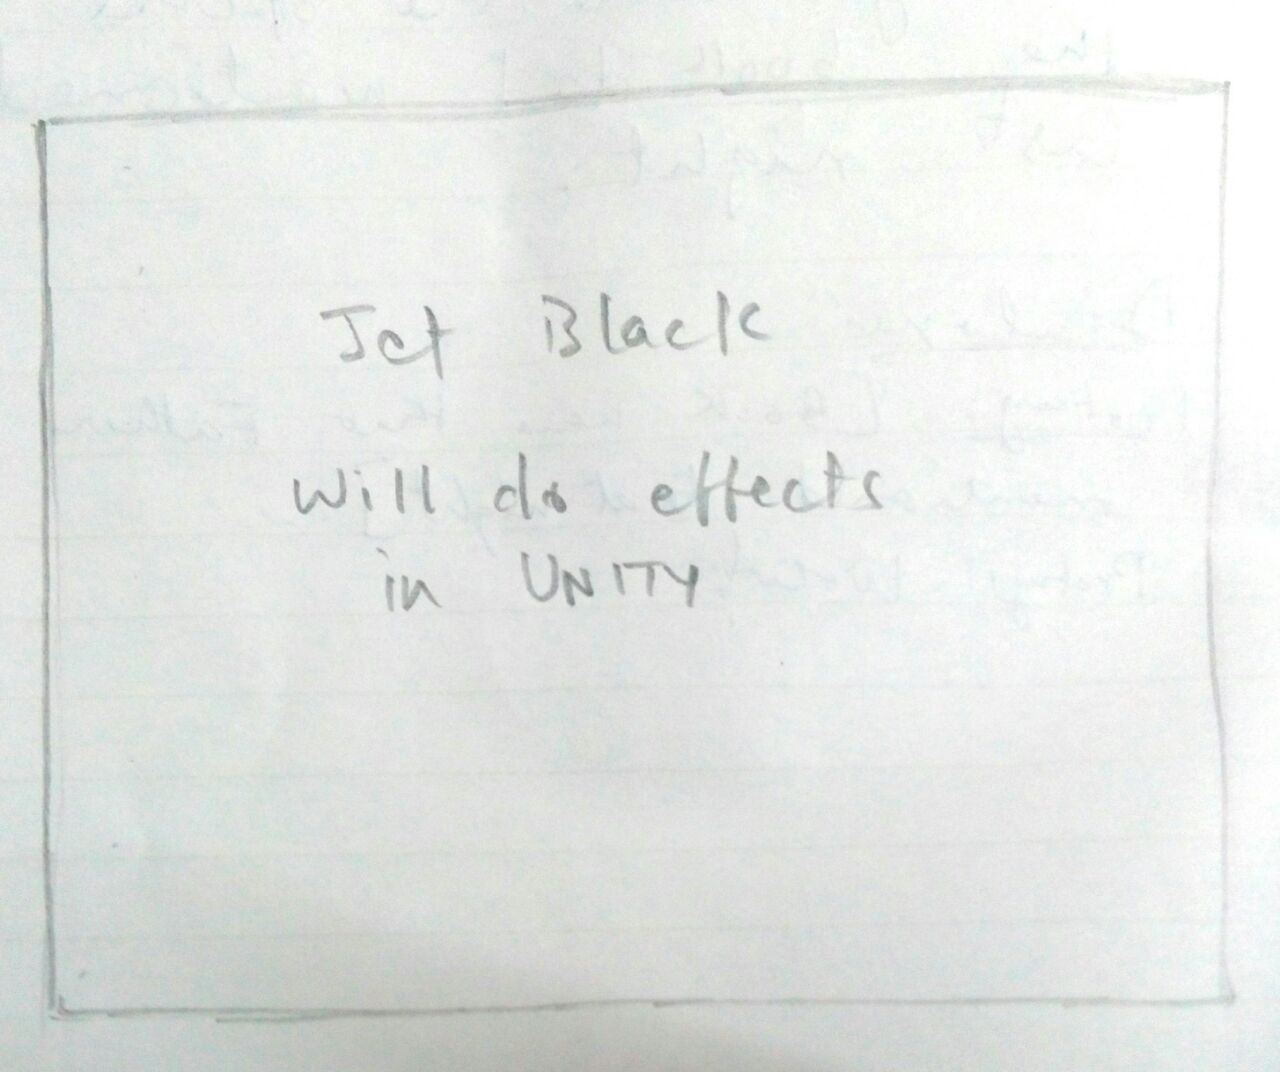 Jet Black
Will do effects
in UNITY